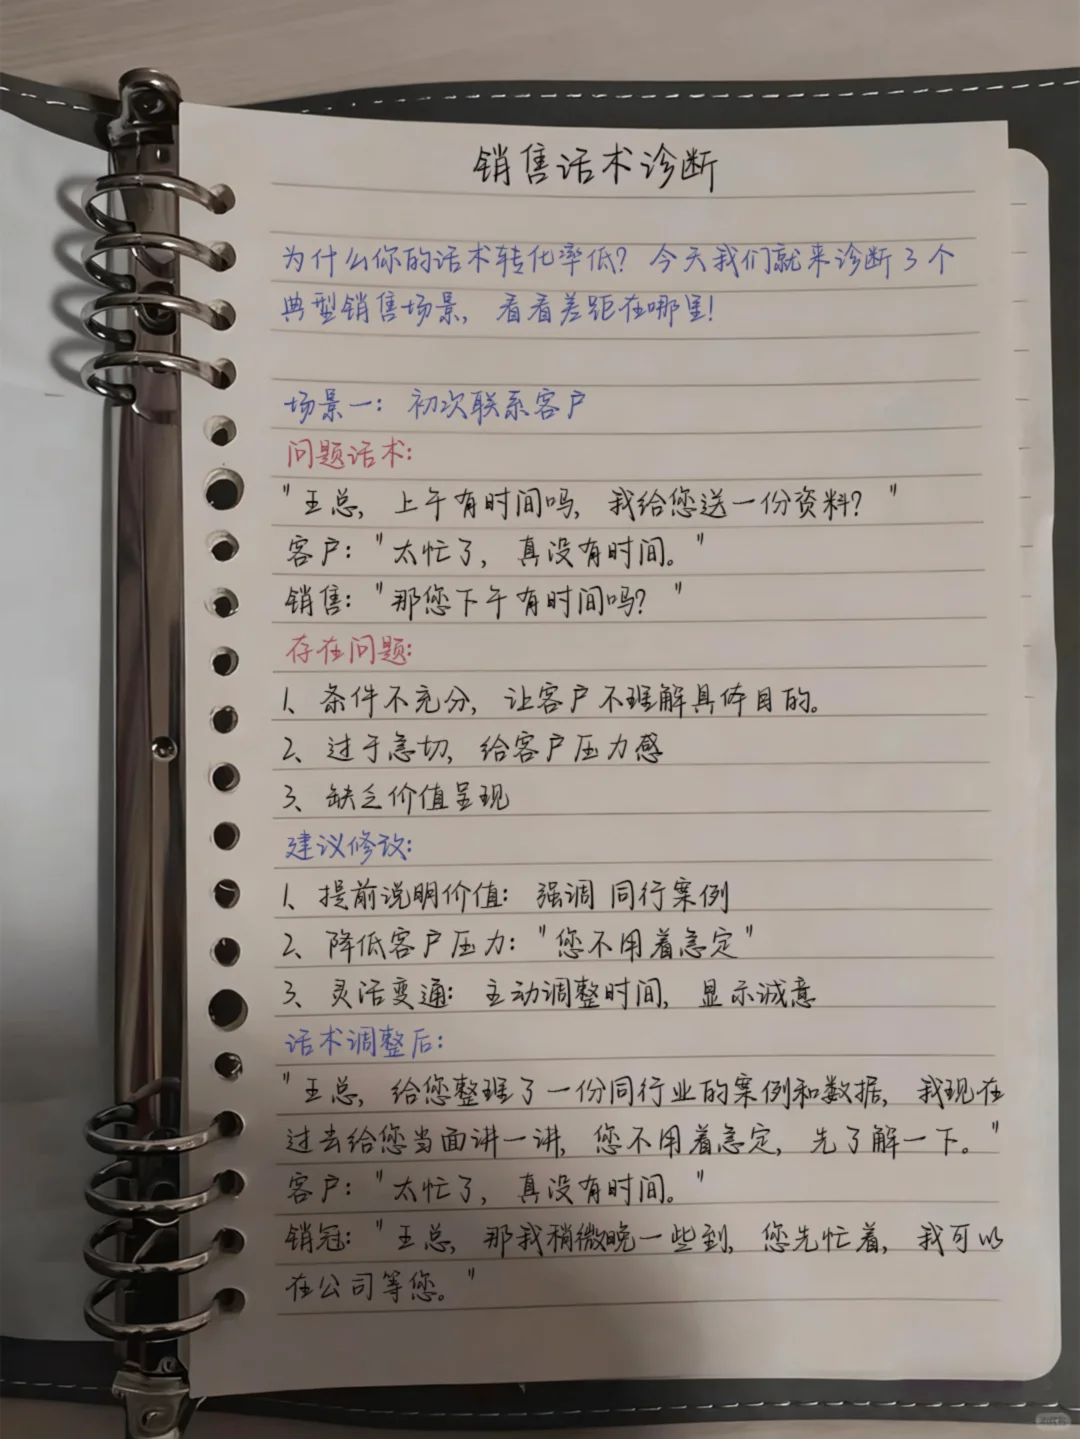 销售话术诊断
为什么你的话术转化率低？今天我们就来诊断3个
典型销售场景，看看差距在哪里！
场景一：初次联系客户
问题话术：
"王总，上午有时间吗，我给您送一份资料？"
客户："太忙了，真没有时间。"
销售："那您下午有时间吗？"
存在问题：
1、条件不充分，让客户不理解具体目的。
2、过于急切，给客户压力感
3、缺乏价值呈现
建议修改：
1、提前说明价值：强调 同行案例
2、降低客户压力："您不用着急定"
3、灵活变通：主动调整时间，显示诚意
话术调整后：
"王总，给您整理了一份同行业的案例和数据，我现在
过去给您当面讲一讲，您不用着急定，先了解一下。"
客户："太忙了，真没有时间。"
销冠："王总，那我稍微晚一些到，您先忙着，我可以
在公司等您。"